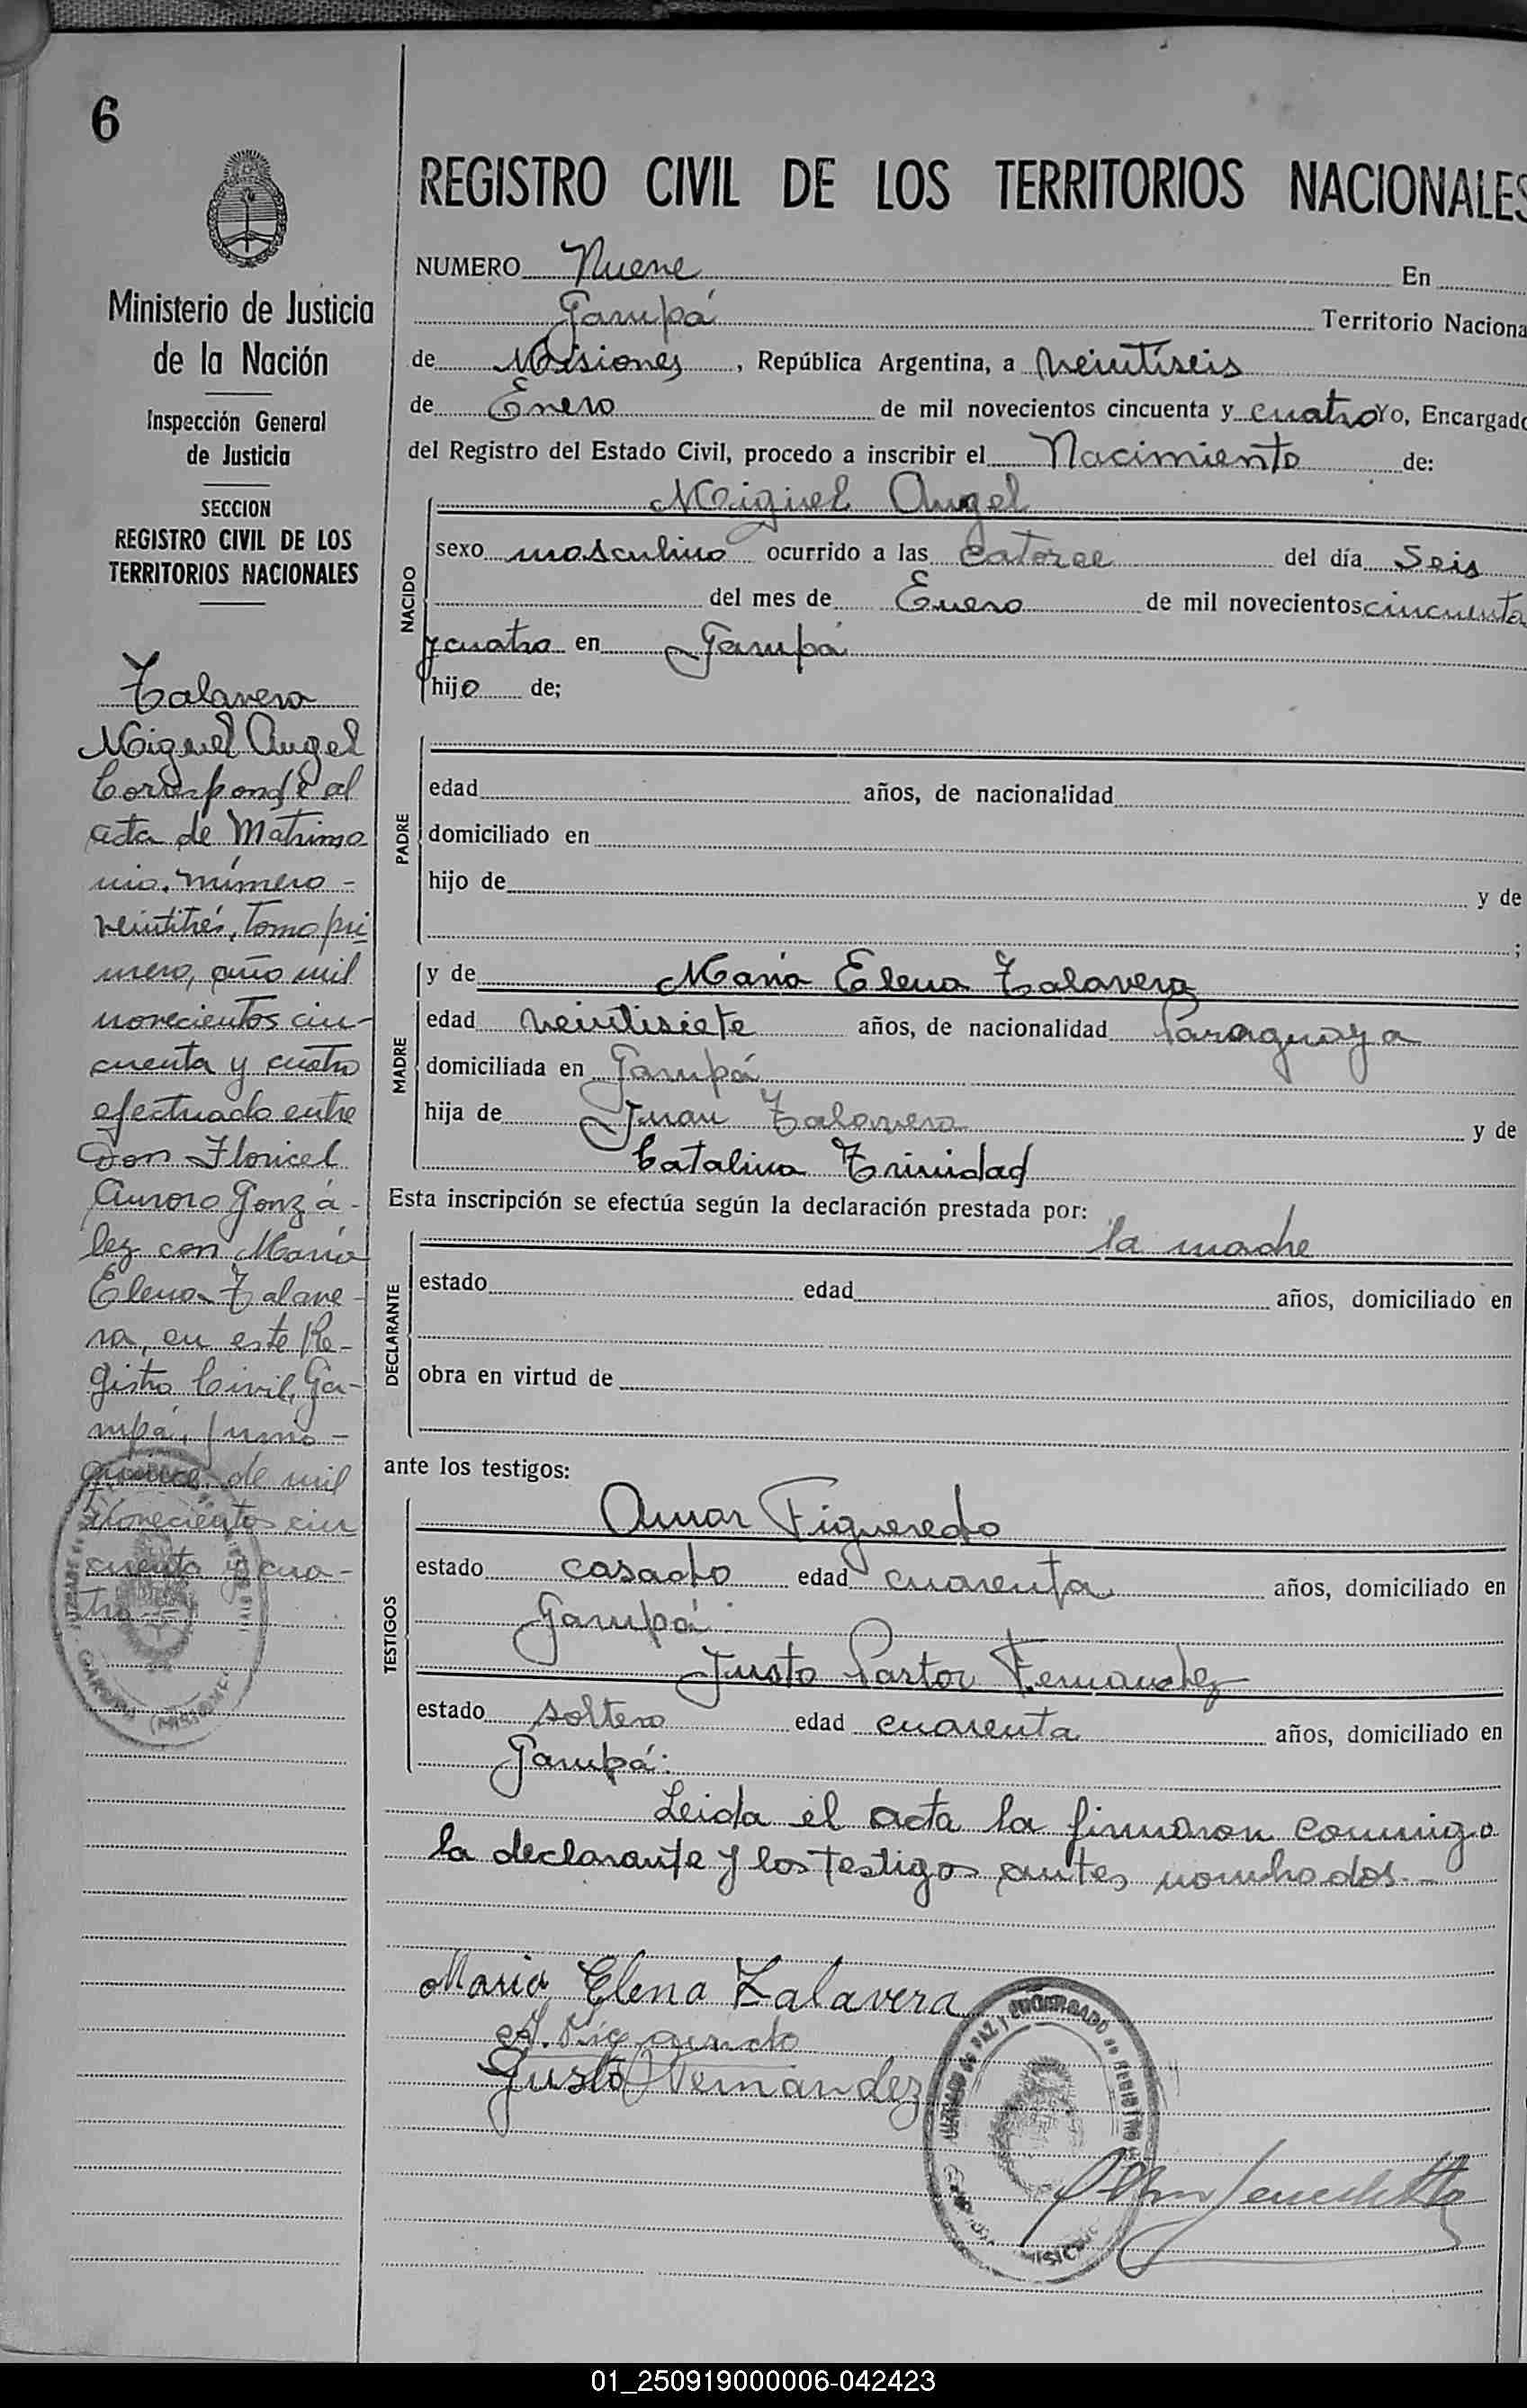 6
Ministerio de Justicia
de la Nación
Inspección General
de Justicia
SECCION
REGISTRO CIVIL DE LOS
TERRITORIOS NACIONALES
Talavera
Miguel Angel
Corresponde al
acta de Matrimo
nio, número -
veintitrés, tomo pri
mero, año mil
novecientos cin-
cuenta y cuatro
efectuado entre
Don Floricel
Aurora Gonzá-
lez con María
Elena Talave-
ra, en este Re-
gistro Civil, Ga-
rupá, Junio -
quince de mil
novecientos cin
cuenta y cua-
tro
REGISTRO CIVIL DE LOS TERRITORIOS NACIONALES
NUMERO Nueve En
Garupá Territorio Naciona
de Misiones, República Argentina, a veintiseis
de Enero de mil novecientos cincuenta y cuatro Yo, Encargado
del Registro del Estado Civil, procedo a inscribir el Nacimiento de:
Miguel Angel
NACIDO
sexo masculino ocurrido a las catorce del día Seis
del mes de Enero de mil novecientos cincuenta
y cuatro en Garupá
hijo de;
PADRE
edad años, de nacionalidad
domiciliado en
hijo de y de
;
MADRE
y de María Elena Talavera
edad veintisiete años, de nacionalidad Paraguaya
domiciliada en Garupá
hija de Juan Talavera y de
Catalina Trinidad
Esta inscripción se efectúa según la declaración prestada por:
la madre
DECLARANTE
estado edad años, domiciliado en
obra en virtud de
ante los testigos:
TESTIGOS
Omar Figueredo
estado casado edad cuarenta años, domiciliado en
Garupá
Justo Pastor Fernandez
estado soltero edad cuarenta años, domiciliado en
Garupá:
Leida el acta la firmaron conmigo
la declarante y los testigos antes nombrados.-
Maria Elena Talavera
Justo Fernandez
JUZGADO DE PAZ Y ENCARGADO DE REGISTRO
01_250919000006-042423